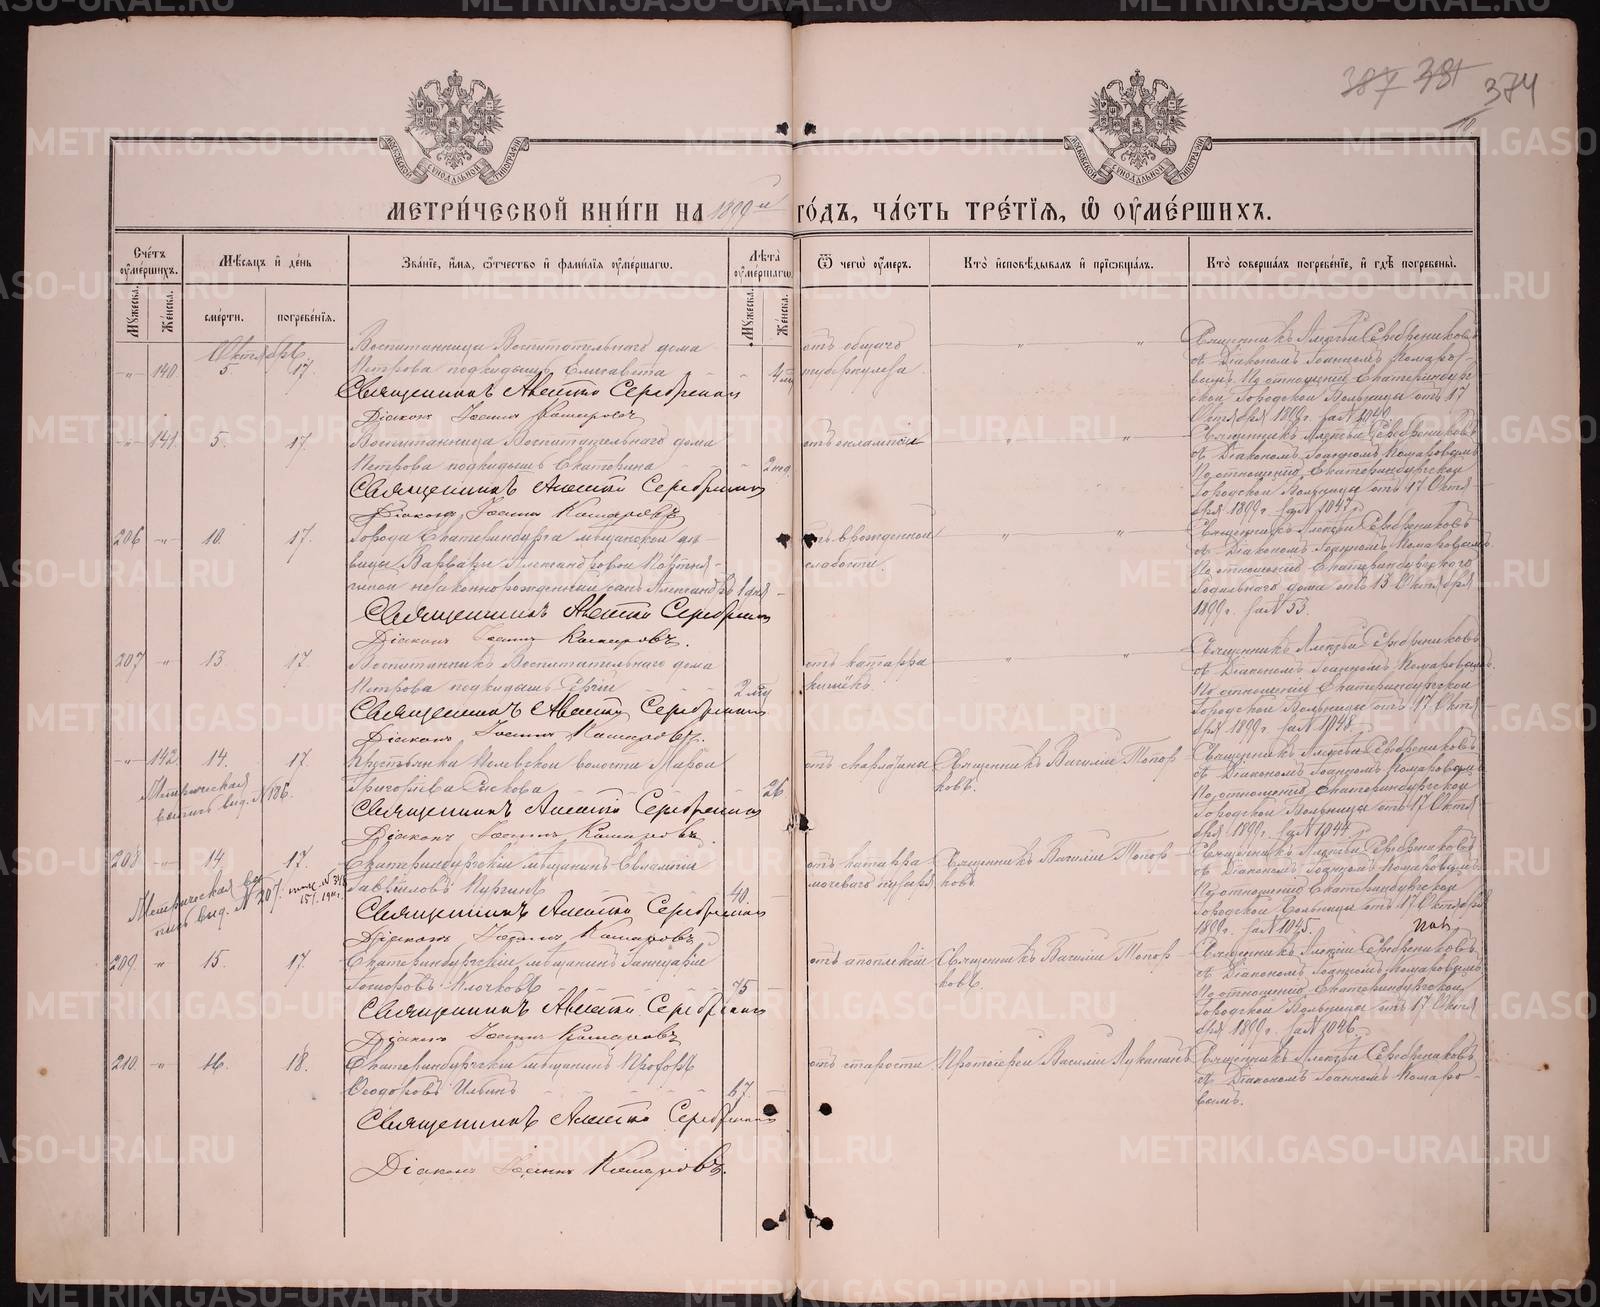 387 381 374
МОСКОВСКОЙ СѴНОДАЛЬНОЙ ТИПОГРАФІИ
МОСКОВСКОЙ СѴНОДАЛЬНОЙ ТИПОГРАФІИ
МЕТРИ́ЧЕСКОЙ КНИ́ГИ НА 1899й ГО́ДЪ, ЧА́СТЬ ТРЕ́ТІЯ, Ѽ ОУМЕ́РШИХЪ.
Сче́тъ оумершихъ.
Мѣсяцъ и де́нь
Зва́ніе, и́мя, ѻтчество и фами́лія оумершагѡ.
Лѣта̀ оумершагѡ
Ѿ чегѡ̀ оумеръ.
Кто̀ исповѣдывалъ и пріобща́лъ.
Кто̀ соверша́лъ погребе́ніе, и гдѣ̀ погребены̀.
Му́жеска.
Же́нска.
сме́рти.
погребе́нія.
Му́жеска.
Же́нска.
Октябрь.
-„- 140 5 17.
Воспитанница Воспитательнаго дома
Петрова подкидышъ Елисавета
Священникъ Алексѣй Серебренниковъ
Діаконъ Іоаннъ Комаровъ
отъ общаго
туберкулеза.
Священникъ Алексѣй Серебрениковъ
съ Діакономъ Іоанномъ Комаро-
вымъ. По отношенію Екатеринбург-
ской Городской Больницы отъ 17
Октября 1899г. за № 1040
-„- 141. 5. 17.
Воспитанница Воспитательнаго дома
Петрова подкидышъ Екатерина
2 нед.
Священникъ Алексѣй Серебренниковъ
Діаконъ Іоаннъ Комаровъ
отъ еклампсіи
Священникъ Алексѣй Серебрениковъ
съ Діакономъ Іоанномъ Комаровымъ
По отношенію Екатеринбургской
Городской Больницы отъ 17 Октя-
бря 1899г. за № 1047.
206 -„- 10. 17.
Города Екатеринбурга мѣщанской дѣ-
вицы Варвары Александровой
незаконнорожденный сынъ Александръ 1 дня
Священникъ Алексѣй Серебренниковъ
Діаконъ Іоаннъ Комаровъ.
отъ врожденной
слабости.
Священникъ Алексѣй Серебрениковъ
съ Діакономъ Іоанномъ Комаровымъ.
По отношенію Екатеринбургскаго
Родильнаго дома отъ 13 Октября
1899г. за № 53.
207 -„- 13. 17.
Воспитанникъ Воспитательнаго дома
Петрова подкидышъ Сергій
Священникъ Алексѣй Серебренниковъ
Діаконъ Іоаннъ Комаровъ.
отъ катарра
кишёкъ.
Священникъ Алексѣй Серебрениковъ
съ Діакономъ Іоанномъ Комаровымъ.
По отношенію Екатеринбургской
Городской Больницы отъ 17 Октя-
бря 1899г. за № 1048.
-„- 142 14. 17.
Крестьянка волости Марѳа
Григорьева
26
Метрическая
выпись выд. № 186.
Священникъ Алексѣй Серебренниковъ
Діаконъ Іоаннъ Комаровъ.
отъ скарлатины
Священникъ Василій Топор
ковъ.
Священникъ Алексѣй Серебрениковъ
съ Діакономъ Іоанномъ Комаровымъ.
По отношенію Екатеринбургской
Городской Больницы отъ 17 Октя-
бря 1899г. за № 1044.
208 -„- 14. 17.
Екатеринбургскій мѣщанинъ Евлампій
40.
Метрическая вы
пись выд. № 207.
Священникъ Алексѣй Серебренниковъ
Діаконъ Іоаннъ Комаровъ
отъ катарра
мочеваго пузыря
Священникъ Василій Топор
ковъ.
Священникъ Алексѣй Серебрениковъ
съ Діакономъ Іоанномъ Комаровымъ
По отношенію Екатеринбургской
Городской Больницы отъ 17 Октября
1899г. за № 1045.
209 -„- 15. 17.
Екатеринбургскій мѣщанинъ Іаннуарій
75
Священникъ Алексѣй Серебренниковъ
Діаконъ Іоаннъ Комаровъ
отъ апоплексіи
Священникъ Василій Топор
ковъ.
Священникъ Алексѣй Серебрениковъ
съ Діакономъ Іоанномъ Комаровымъ
По отношенію Екатеринбургской
Городской Больницы отъ 17 Октя
бря 1899г. за № 1046.
210. -„- 16. 18.
Екатеринбургскій мѣщанинъ Прохоръ
Ѳеодоровъ Ильинъ
67.
Священникъ Алексѣй Серебренниковъ
Діаконъ Іоаннъ Комаровъ.
отъ старости
Протоіерей Василій Луканинъ
Священникъ Алексѣй Серебрениковъ
съ Діакономъ Іоанномъ Комаро-
вымъ.
METRIKI.GASO-URAL.RU